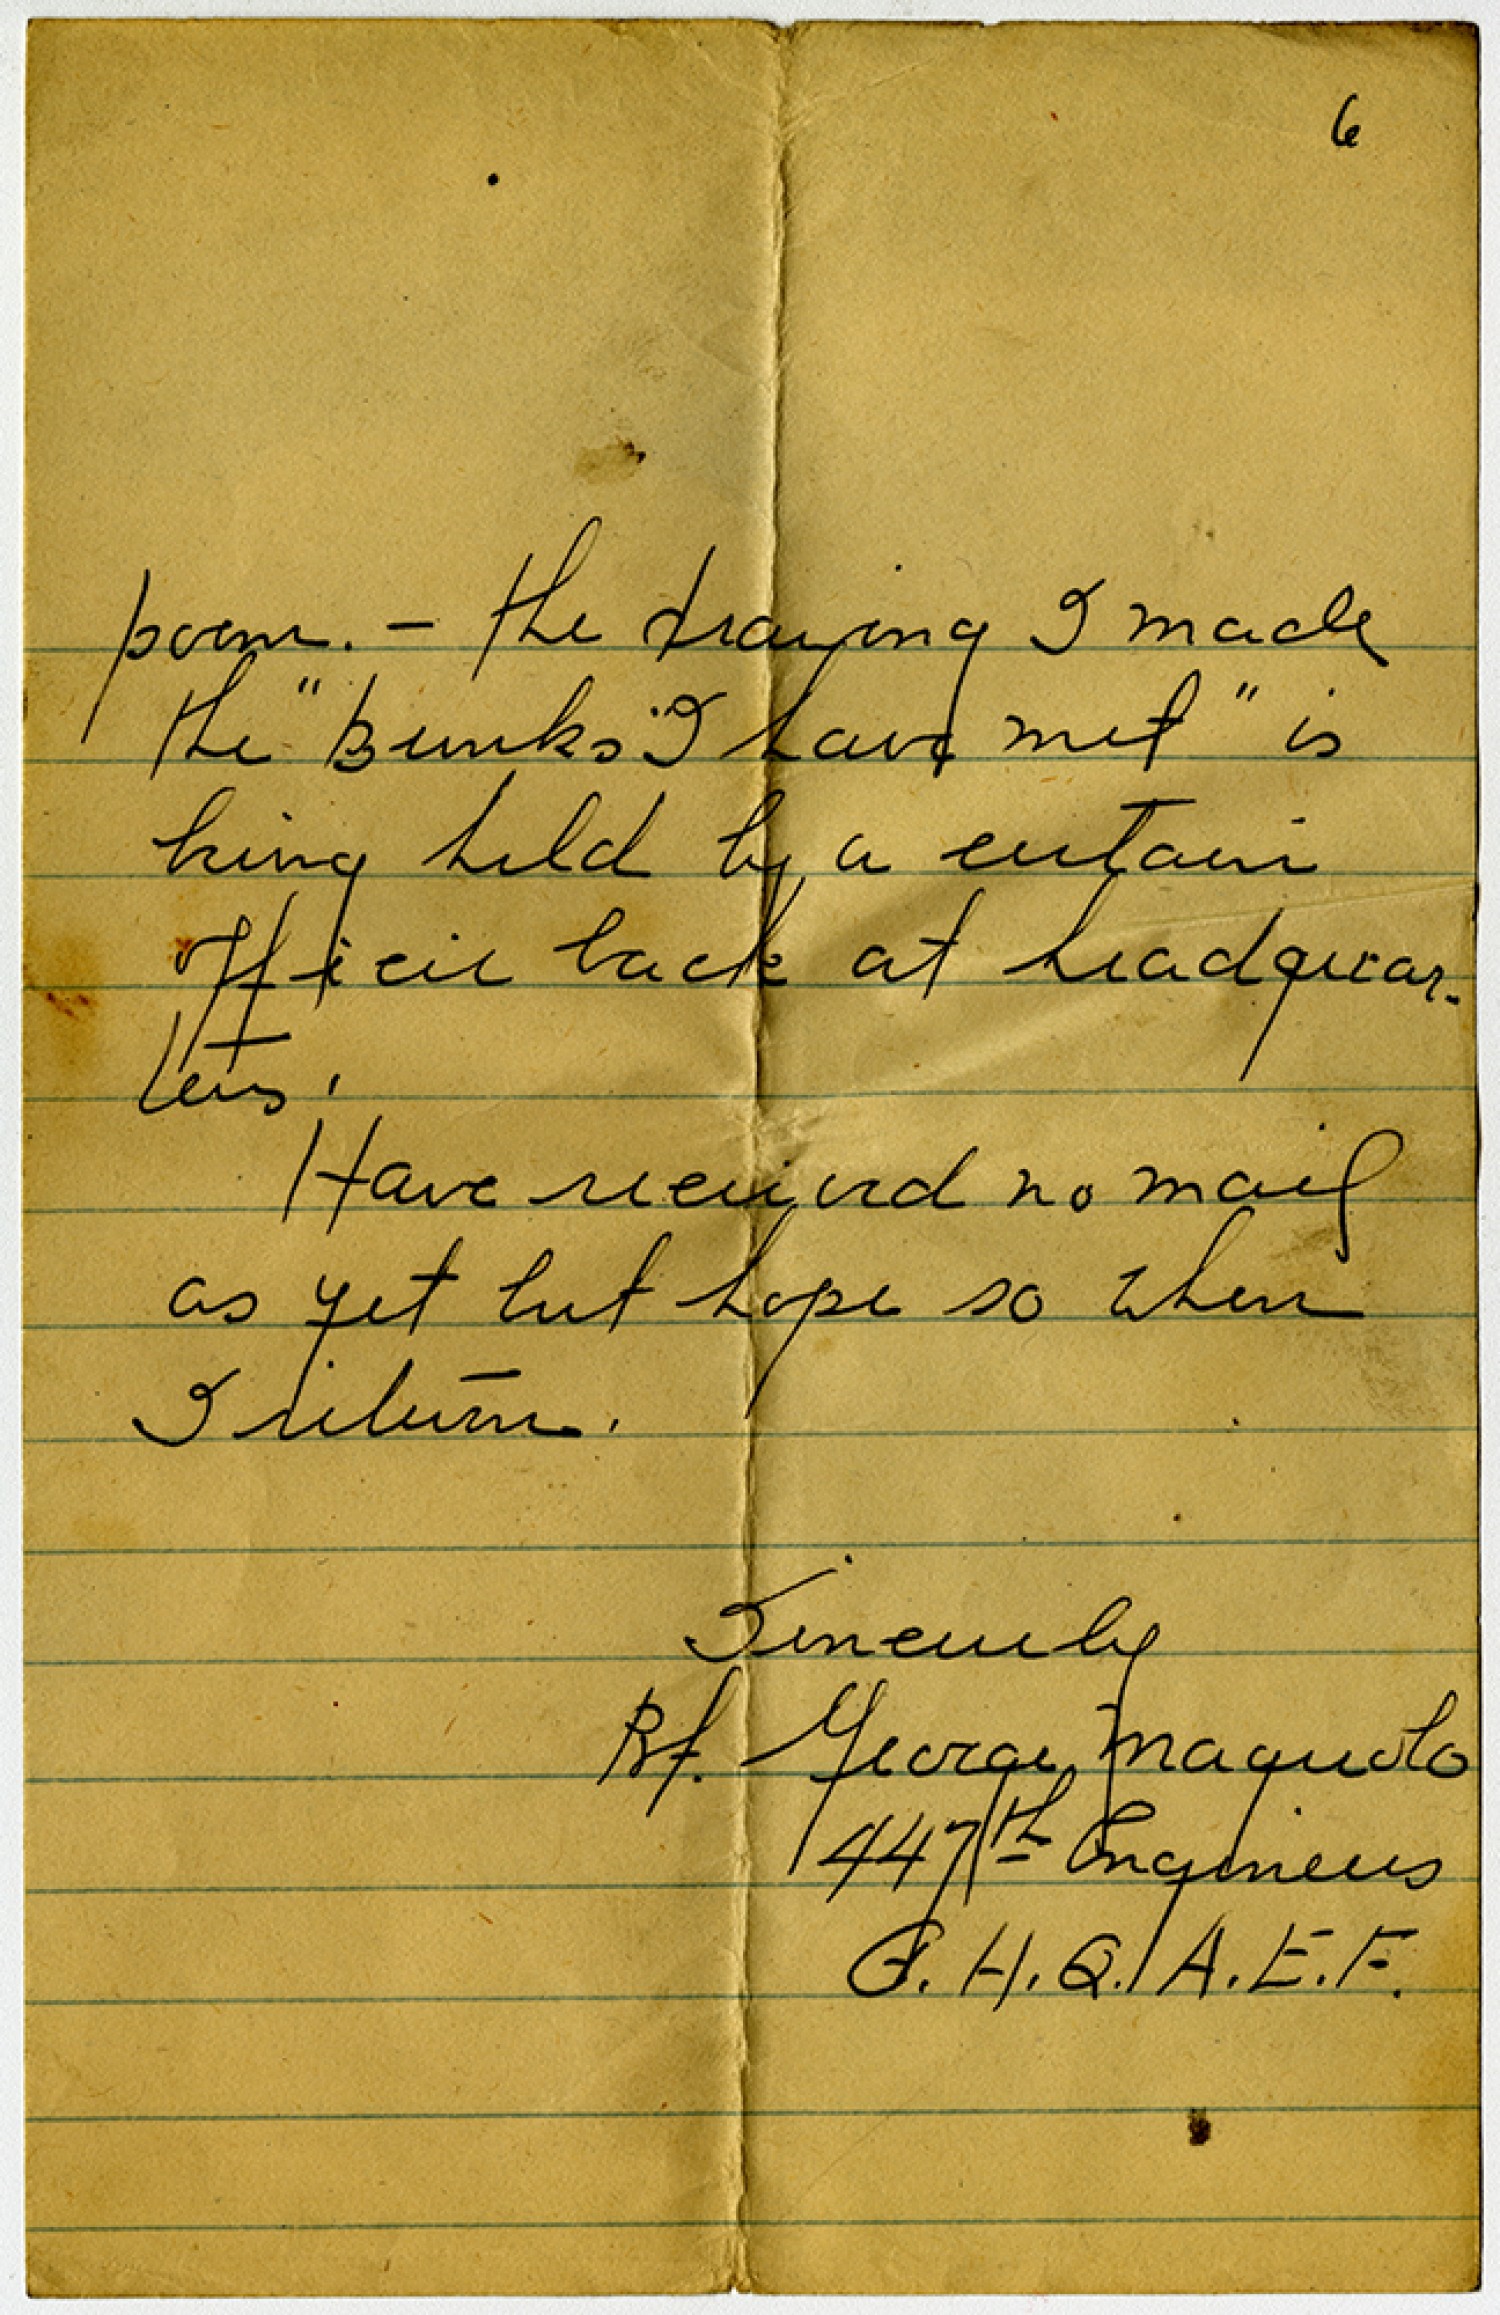 6
poem. - the drawing I made
the "Bunks I have met" is
being held by a certain
officer back at headquar-
ters.
Have received no mail
as yet but hope so when
I return.
Sincerely
Pvt. George Magnolo
447th Engineers
G.H.Q. A.E.F.